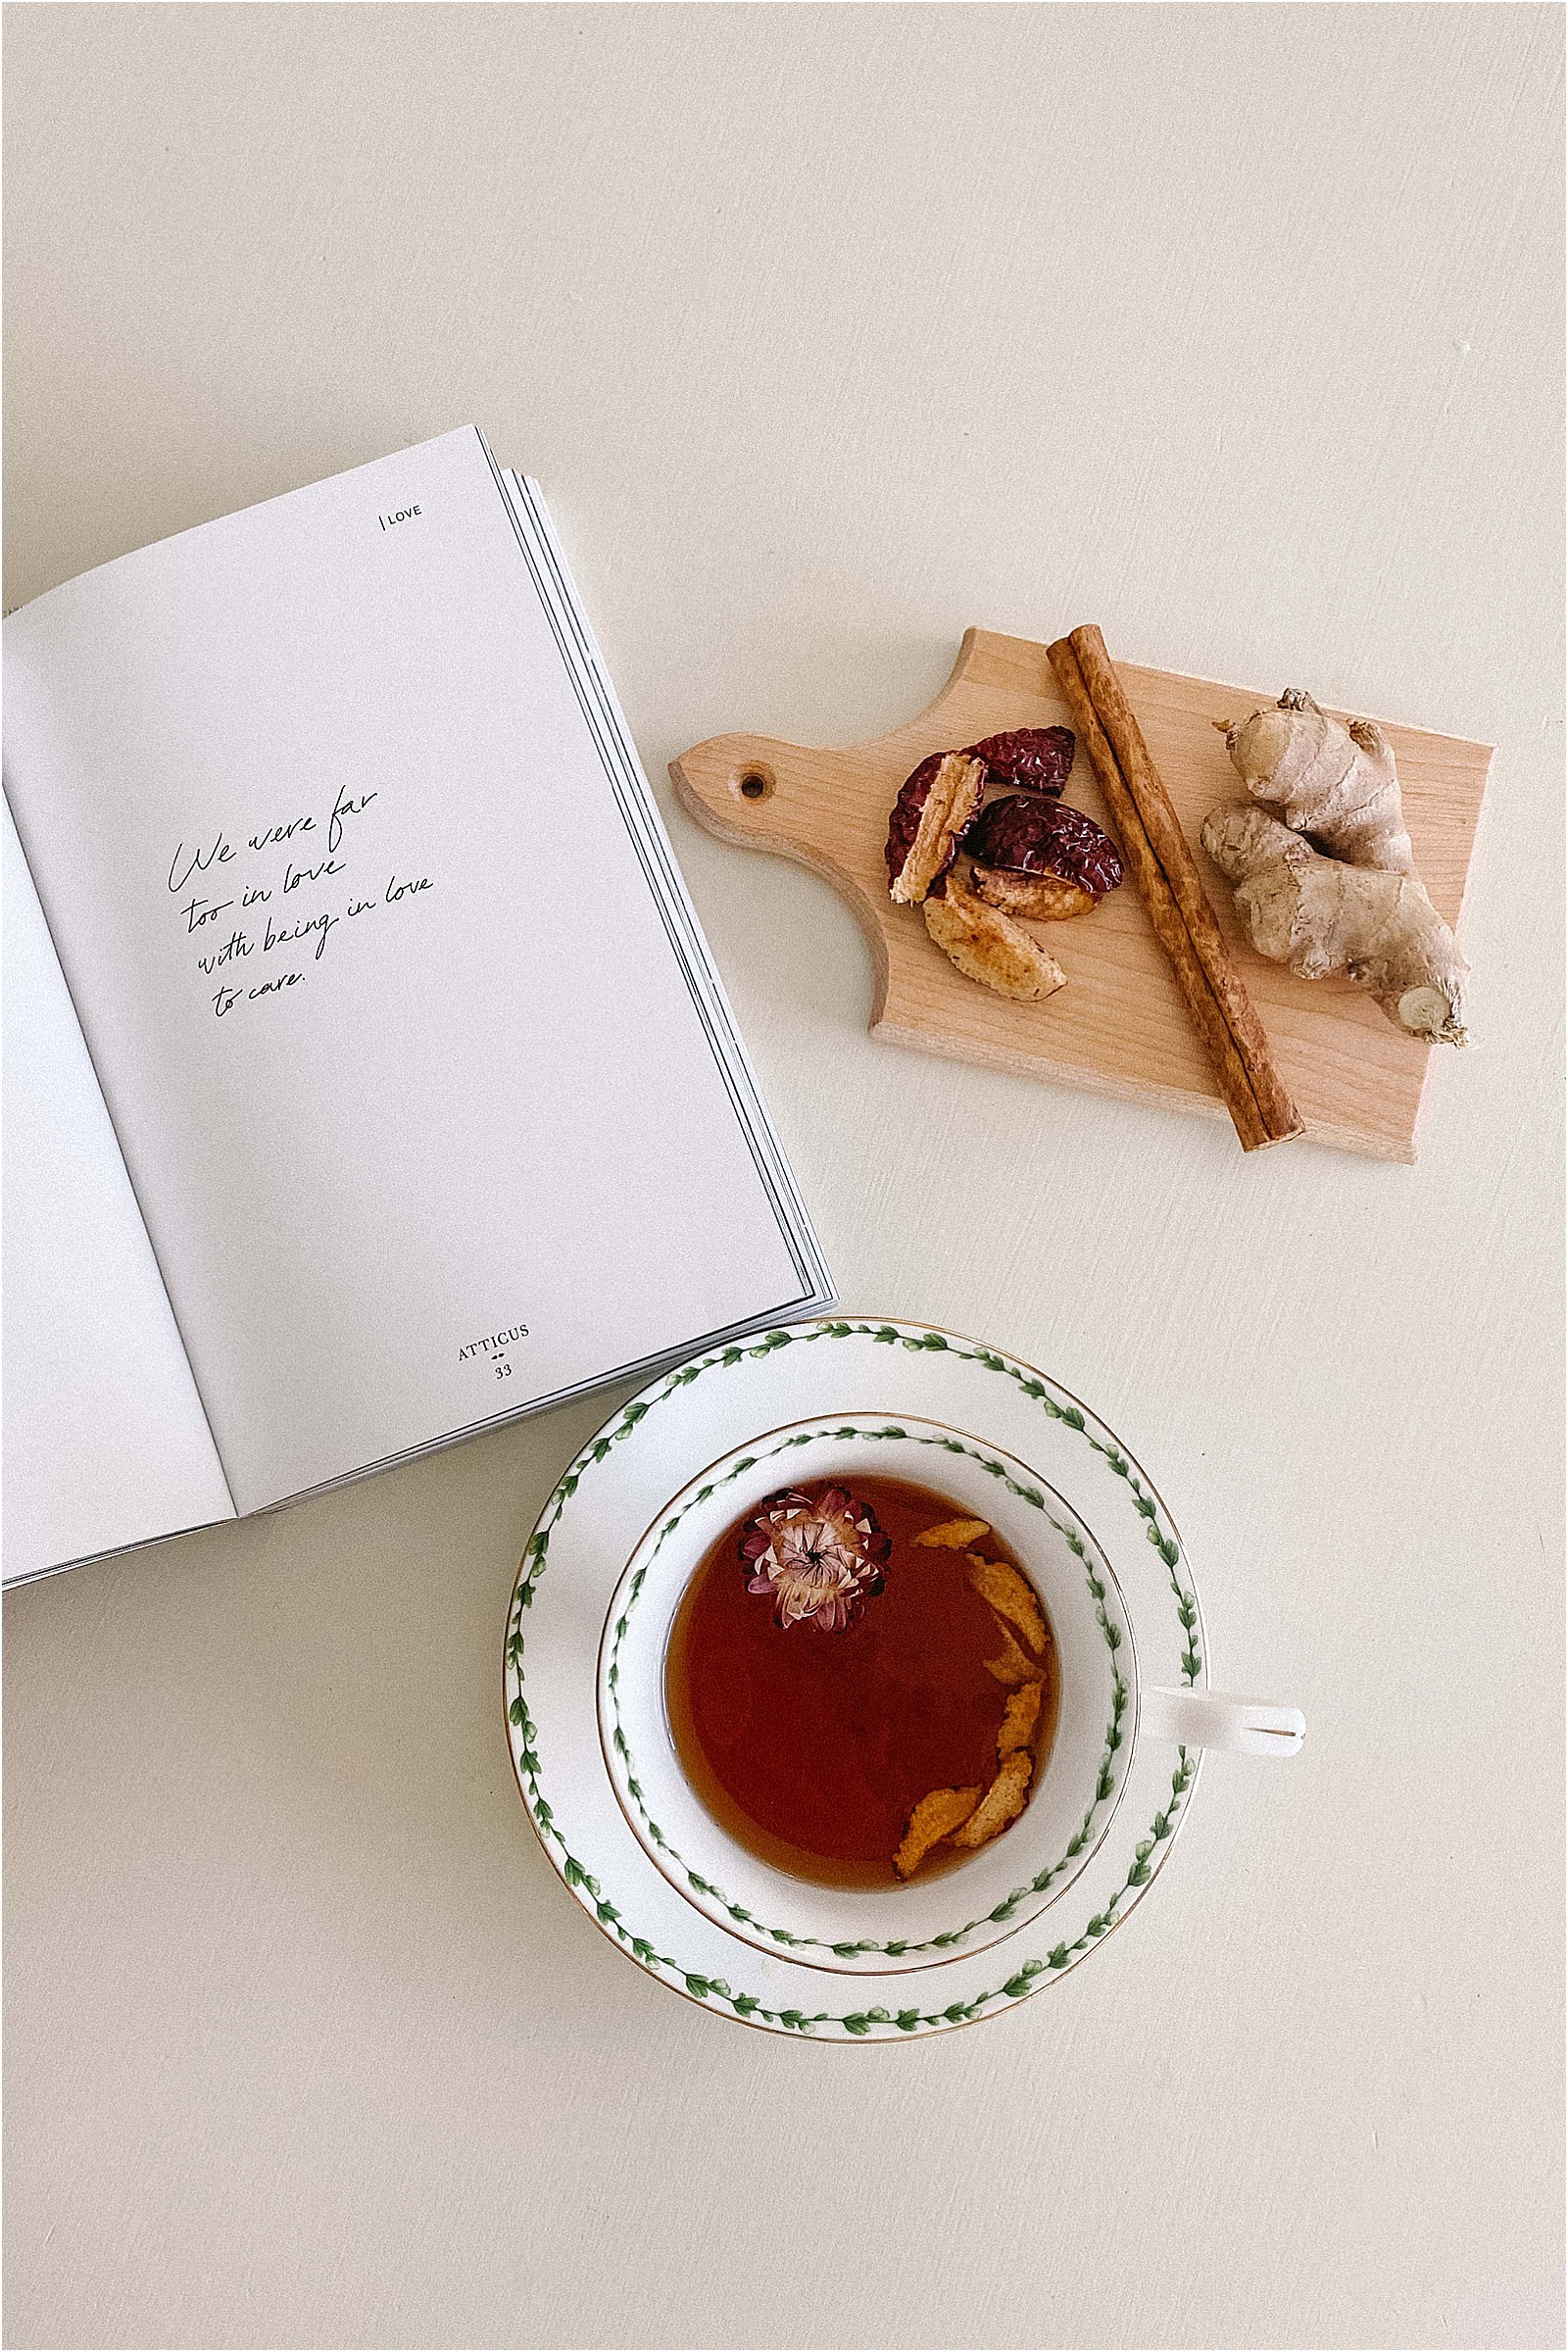 | LOVE
We were far
too in love
with being in love
to care.
ATTICUS
33